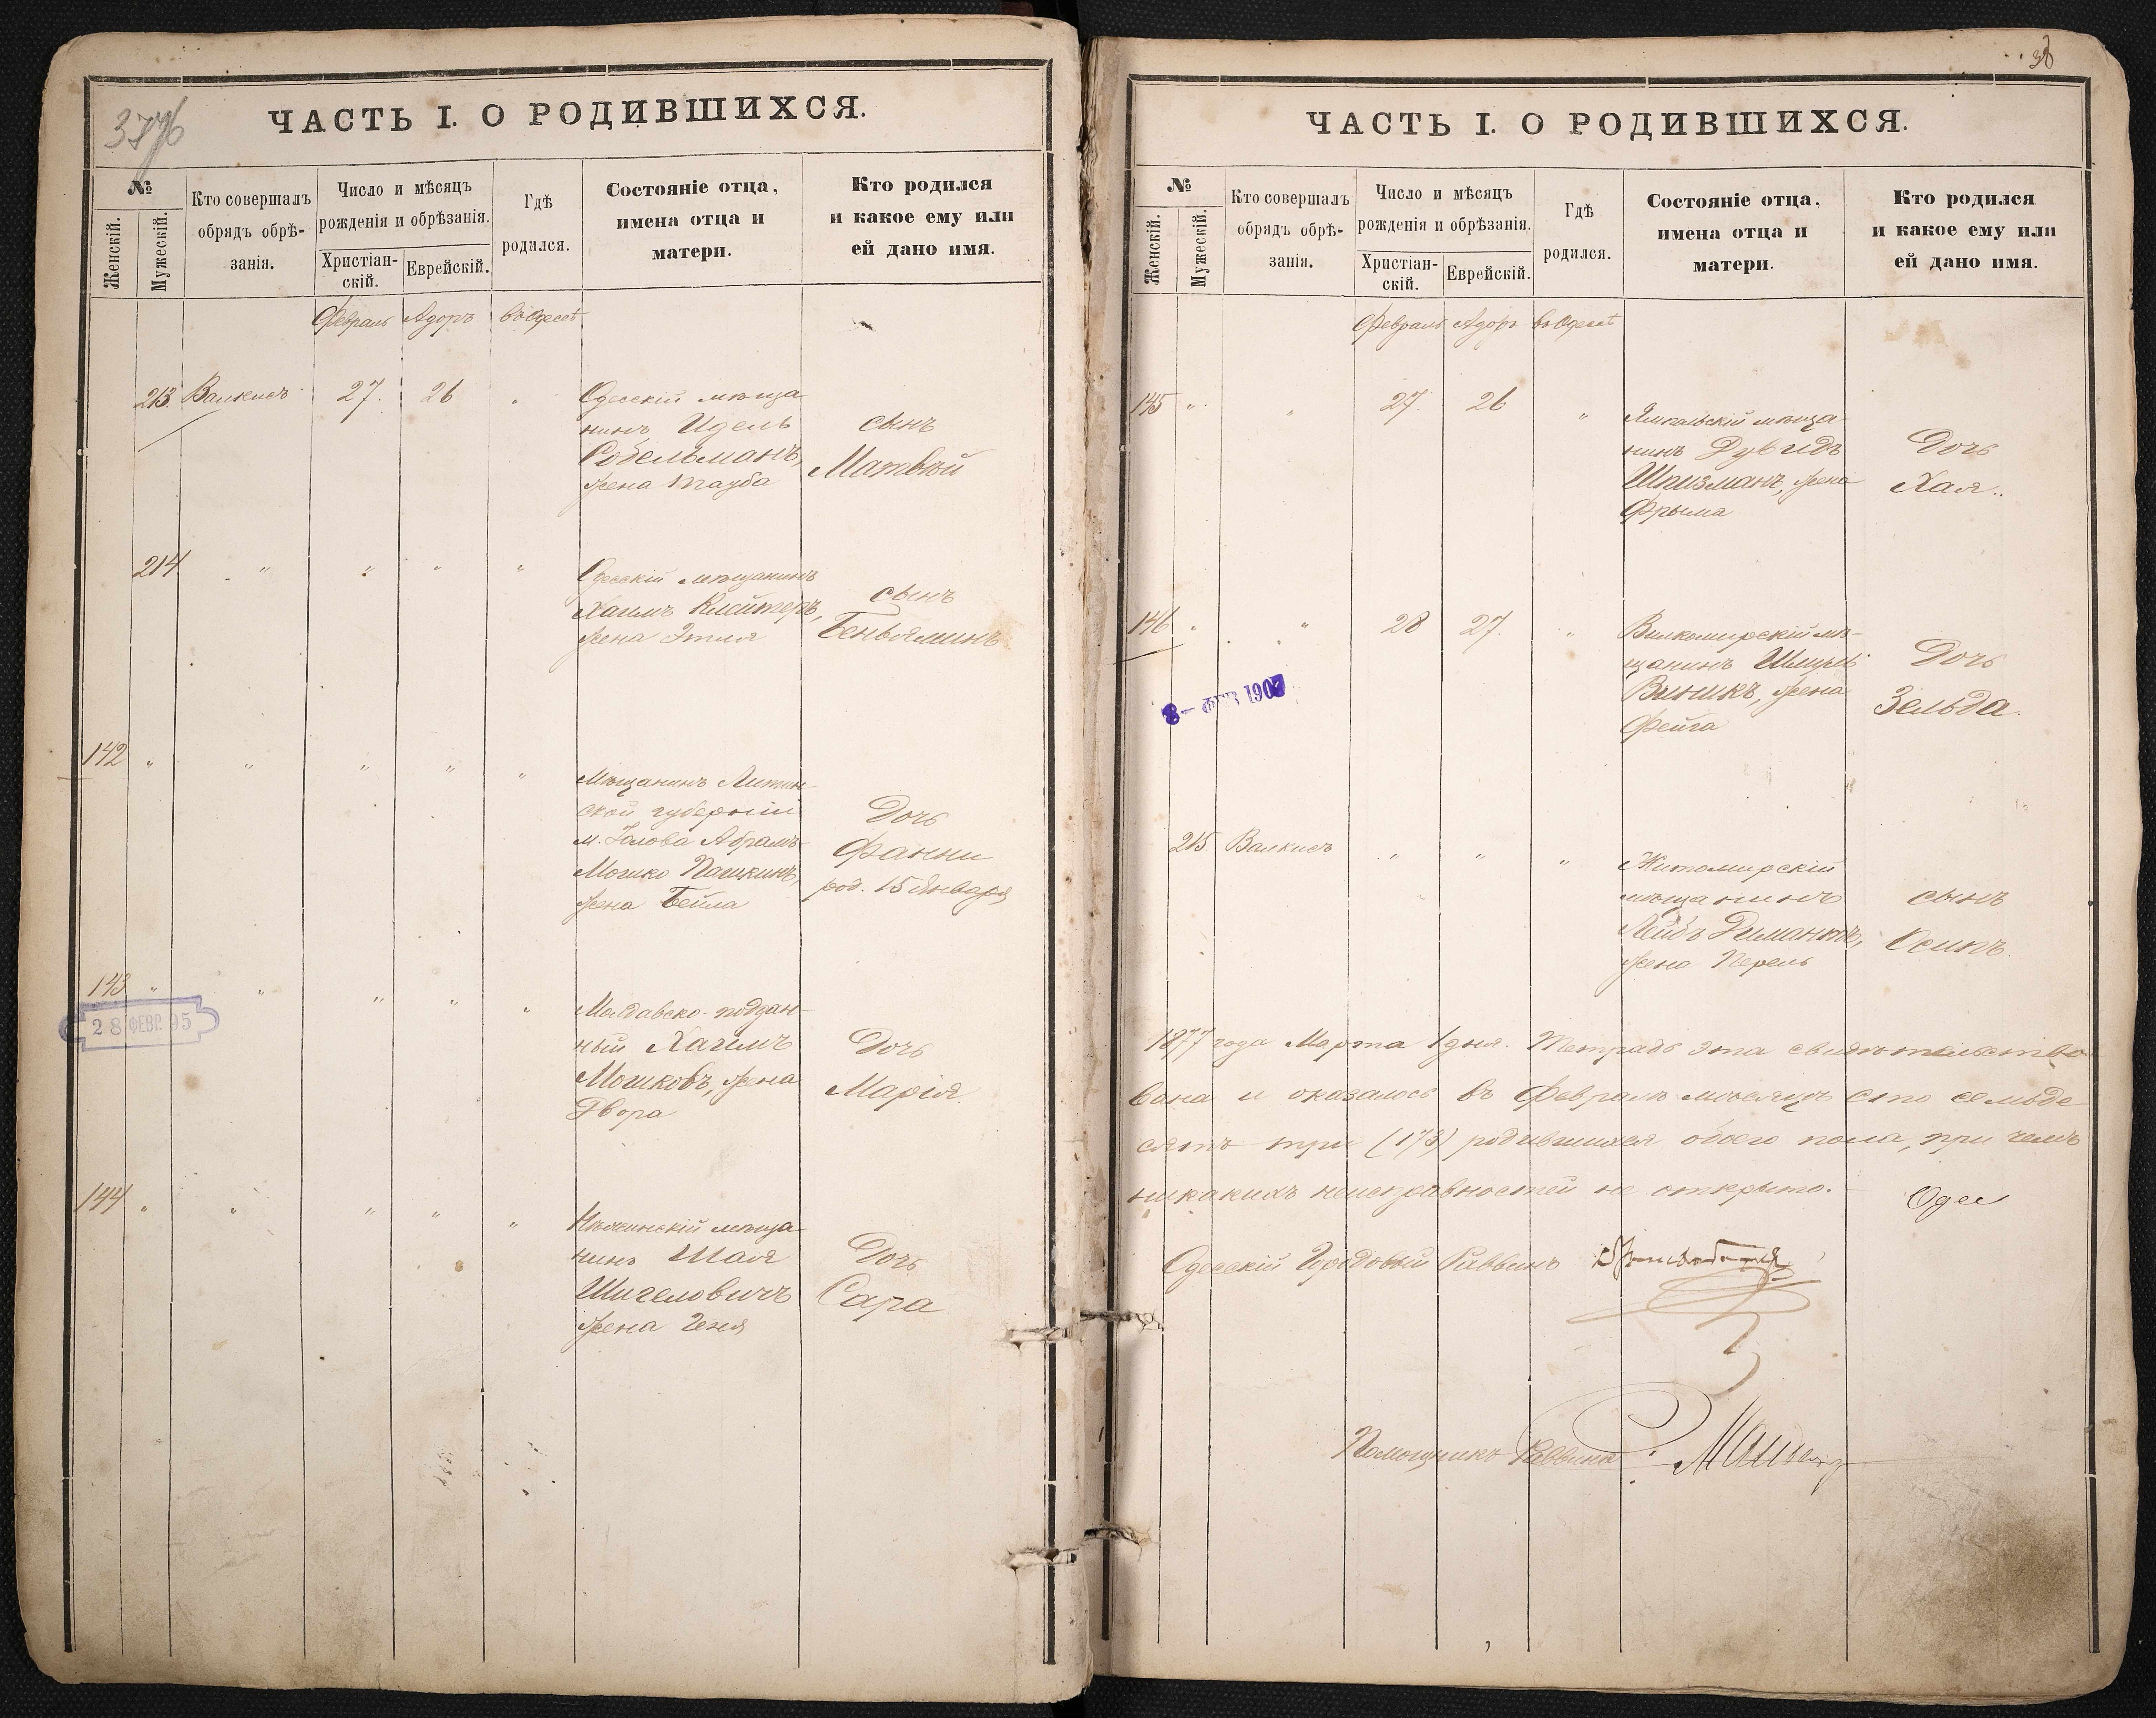 3776
ЧАСТЬ I. О РОДИВШИХСЯ.
№
Женскій.
Мужескій.
Кто совершалъ
обрядъ обрѣ-
занія.
Число и мѣсяцъ
рожденія и обрѣзанія.
Христіан-
скій.
Еврейскій.
Гдѣ
родился.
Состояніе отца,
имена отца и
матери.
Кто родился
и какое ему или
ей дано имя.
Февраль Адоръ въ Одессѣ
213. Валкисъ 27. 26 "
Одесскій мѣща
нинъ Идель
Собельманъ,
жена Тауба
сынъ
Матвѣй
214 " " " "
Одесскій мѣщанинъ
Хаимъ Клейтеръ,
жена Этля
сынъ
Беньяминъ
142 " " " " "
Мѣщанинъ
ской губерніи
м. Абрамъ
Мошко Пашкинъ,
жена Бейла
Дочь
Фанни
род. 15 Января
143 " " " " "
28 ФЕВР. 95
Молдавско-поддан-
ный Хаимъ
Мошковъ, жена
Двора
Дочь
Марія
144 " " " " "
Нѣжинскій мѣща
нинъ Шая
Шигеловичъ
жена Геня
Дочь
Сара
36
ЧАСТЬ I. О РОДИВШИХСЯ.
№
Женскій.
Мужескій.
Кто совершалъ
обрядъ обрѣ-
занія.
Число и мѣсяцъ
рожденія и обрѣзанія.
Христіан-
скій.
Еврейскій.
Гдѣ
родился.
Состояніе отца,
имена отца и
матери.
Кто родился
и какое ему или
ей дано имя.
Февраль Адоръ въ Одессѣ
145 " " 27. 26 "
Ямпольскій мѣща-
нинъ Дувидъ
Шпизманъ, жена
Фрыма
Дочь
Хая.
146 " " 28 27. "
8 – ФЕВ 1902
Вилкомирскій мѣ-
щанинъ Шмуль
Виникъ, жена
Фейга
Дочь
Зельда.
215 Валкисъ " " "
Житомирскій
мѣщанинъ
Лейбъ Димантъ,
жена Перель
сынъ
Осипъ.
1877 года Марта 1 дня. Тетрадь эта свидѣтельство
вана и оказалось въ Февралѣ мѣсяцѣ сто семьде
сятъ три (173) родившихся обоего пола, при чемъ
никакихъ неисправностей не открыто.
Одес
Одесскій Городовый Раввинъ
Помощникъ Раввина